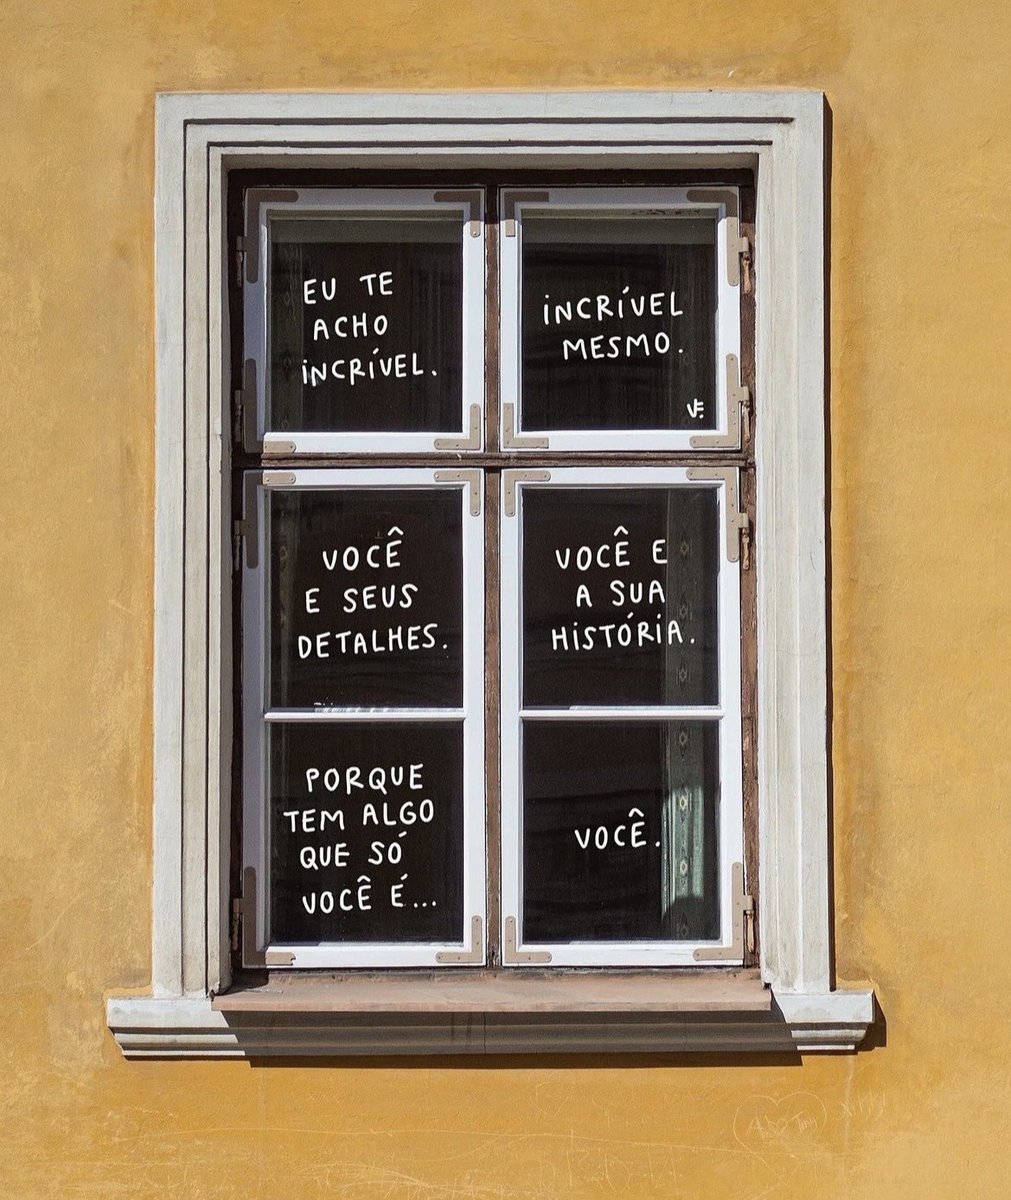 EU TE
ACHO
INCRÍVEL.
INCRÍVEL
MESMO.
VE.
VOCÊ
E SEUS
DETALHES.
VOCÊ E
A SUA
HISTÓRIA.
PORQUE
TEM ALGO
QUE SÓ
VOCÊ É...
VOCÊ.